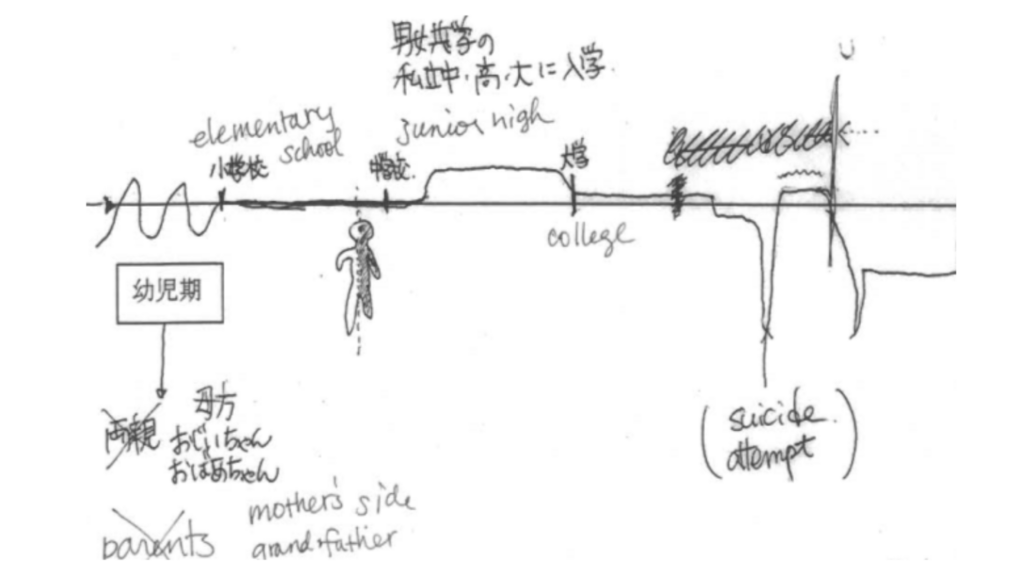 男女共学の
私立中・高・大に入学.
elementary
school
junior high
小学校
中学校.
大学
college
幼児期
両親
母方
おじいちゃん
おばあちゃん
parents
mother's side
grand father
(suicide.
attempt)